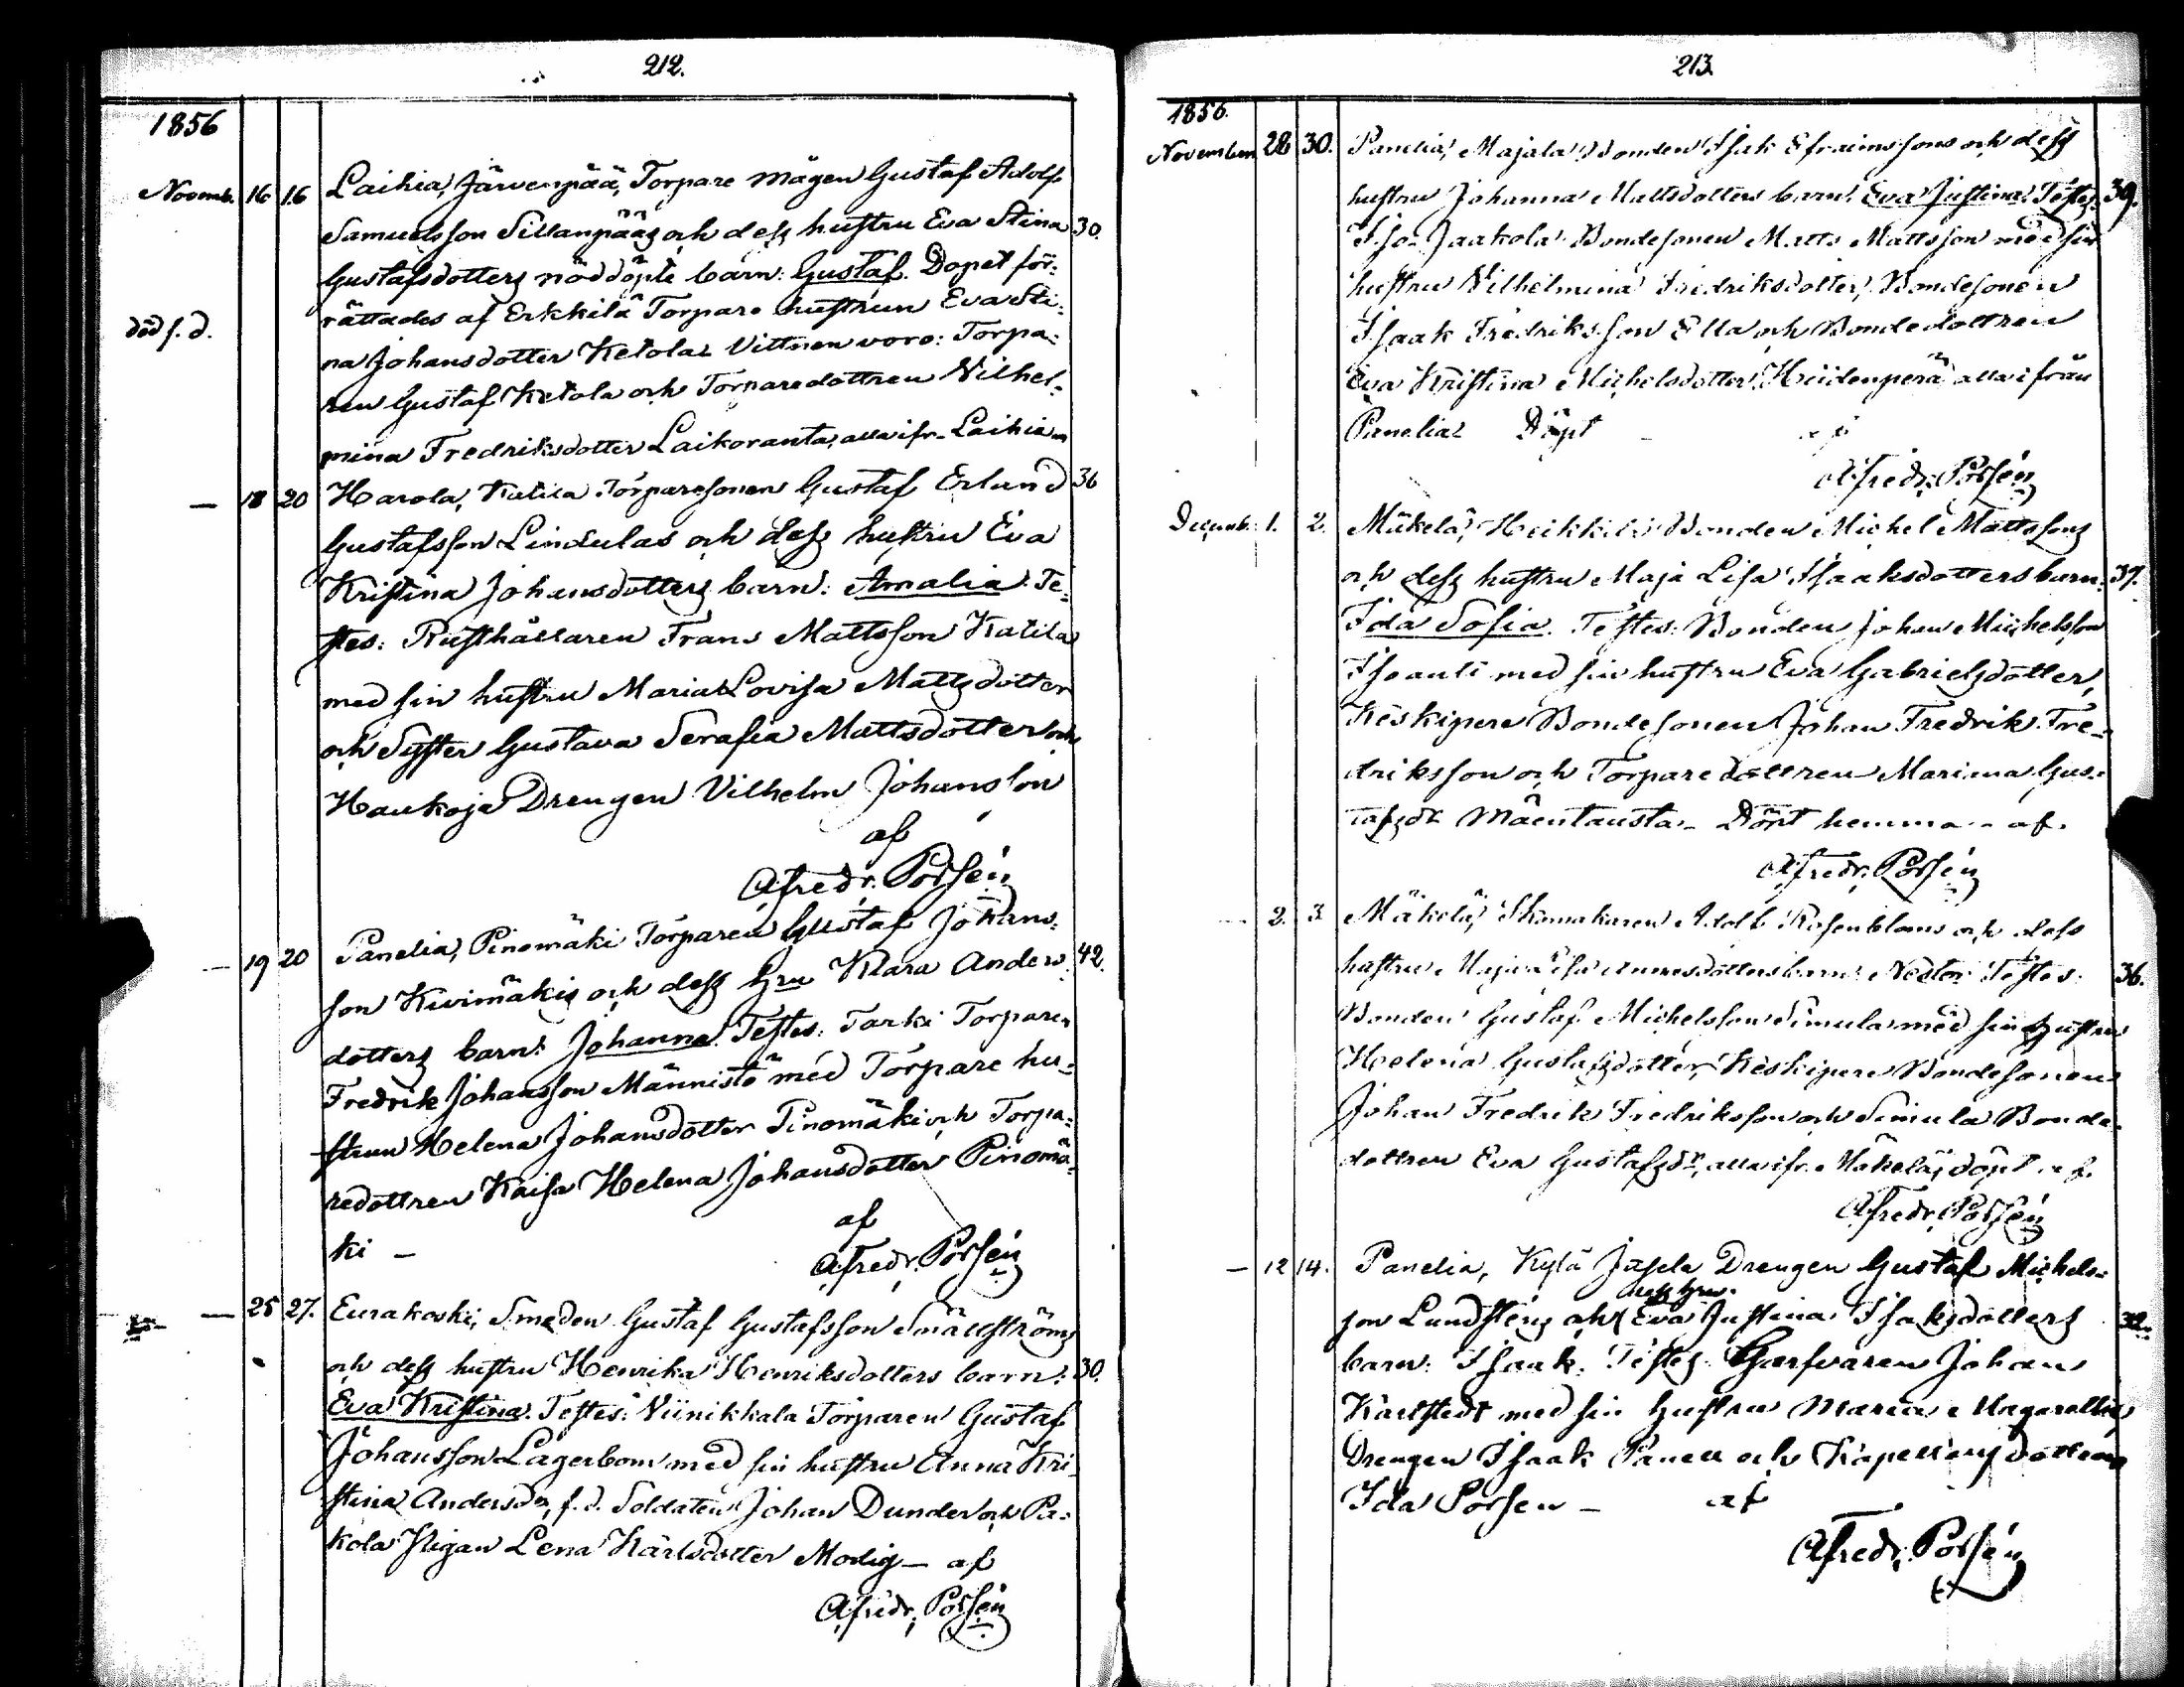 212.
1856
Novemb. 16 16 Laihia, Järvenpää, Torpare mågen Gustaf Adolf
Samuelsson Sillanpääs och dess hustru Eva Stina 30.
Gustafsdotters nöddöpte barn: Gustaf. Dopet för-
död s. d. rättades af Erkkilä Torpare hustrun Eva Sti-
na Johansdotter Ketola. Vittnen voro: Torpa-
ren Gustaf Ketola och Torparedottren Vilhel-
mina Fredriksdotter Laikoranta, alla ifr. Laihia
— 18 20 Harola, Katila Torparesonen Gustaf Erland 36
Gustafsson Lindulas och dess hustru Eva
Kristina Johansdotters barn: Amalia. Te-
stes: Rusthållaren Frans Mattsson Katila
med sin hustru Maria Lovisa Mattsdotter
och Syster Gustava Serafia Mattsdotter och
Haukoja Drengen Vilhelm Johansson
af
Alfredr. Porsén
— 19 20 Panelia, Pinomäki Torparen Gustaf Johans-
son Kivimäkis och dess hru Klara Anders- 42.
dotters barn: Johanna. Testes: Tarki Torparen
Fredrik Johansson Männistö med Torpare hu-
strun Helena Johansdotter Pinomäki och Torpa-
redottren Kaisa Helena Johansdotter Pinomä-
ki — af
Alfredr. Porsén
— 25 27. Eurakoski, Smeden Gustaf Gustafsson Smällströms
och dess hustru Henrika Henriksdotters barn: 30.
Eva Kristina. Testes: Viinikkala Torparen Gustaf
Johansson Lagerbom med sin hustru Anna Kri-
stina Andersdr, f. d. Soldaten Johan Dunder och Pa-
kola Pigan Lena Karlsdotter Modig — af
Alfredr. Porsén
213
1856.
November 28 30. Panelia, Majala Bonden Isak Efraimssons och dess
hustru Johanna Mattsdotters barn: Eva Justina. Testes: 39.
Iso-Jaakola Bondesonen Matts Mattsson med sin
hustru Vilhelmina Fredriksdotter, Bondesonen
Isaak Fredriksson Ella och Bondedottren
Eva Kristina Michelsdotter Hiidenperä alla ifrån
Panelia. Döpt af
Alfredr. Porsén
Decemb. 1. 2. Mäkelä, Heikkilä Bonden Michel Mattssons
och dess hustru Maja Lisa Isaaksdotters barn: 37.
Ida Sofia. Testes: Bonden Johan Michelsson
Isoanti med sin hustru Eva Gabrielsdotter,
Keskipere Bondesonen Johan Fredrik Fre-
driksson och Torparedottren Mariana Gus-
tafsdr Mäentausta. Döpt hemma — af.
Alfredr. Porsén
— 2. 3. Mäkelä, Skomakaren Adolf Rosenbloms och dess
hustru Maja Lisa barn: Nestor. Testes: 36.
Bonden Gustaf Michelsson Simula med sin hustru
Helena Gustafsdotter, Keskipere Bondesonen
Johan Fredrik Fredriksson och Simula Bonde-
dottren Eva Gustafsdr, alla ifr. Mäkelä, döpt af.
Alfredr. Porsén
— 12 14. Panelia, Kylä Drengen Gustaf Michels-
dess hru
son Lundstens och Eva Justina Isaksdotters
barn: Isaak. Testes: Garfvaren Johan
Karlstedt med sin hustru Maria Margaretha
Drengen Isaak Panell och Kapellans dottren
Ida Porsen — af
Alfredr. Porsén